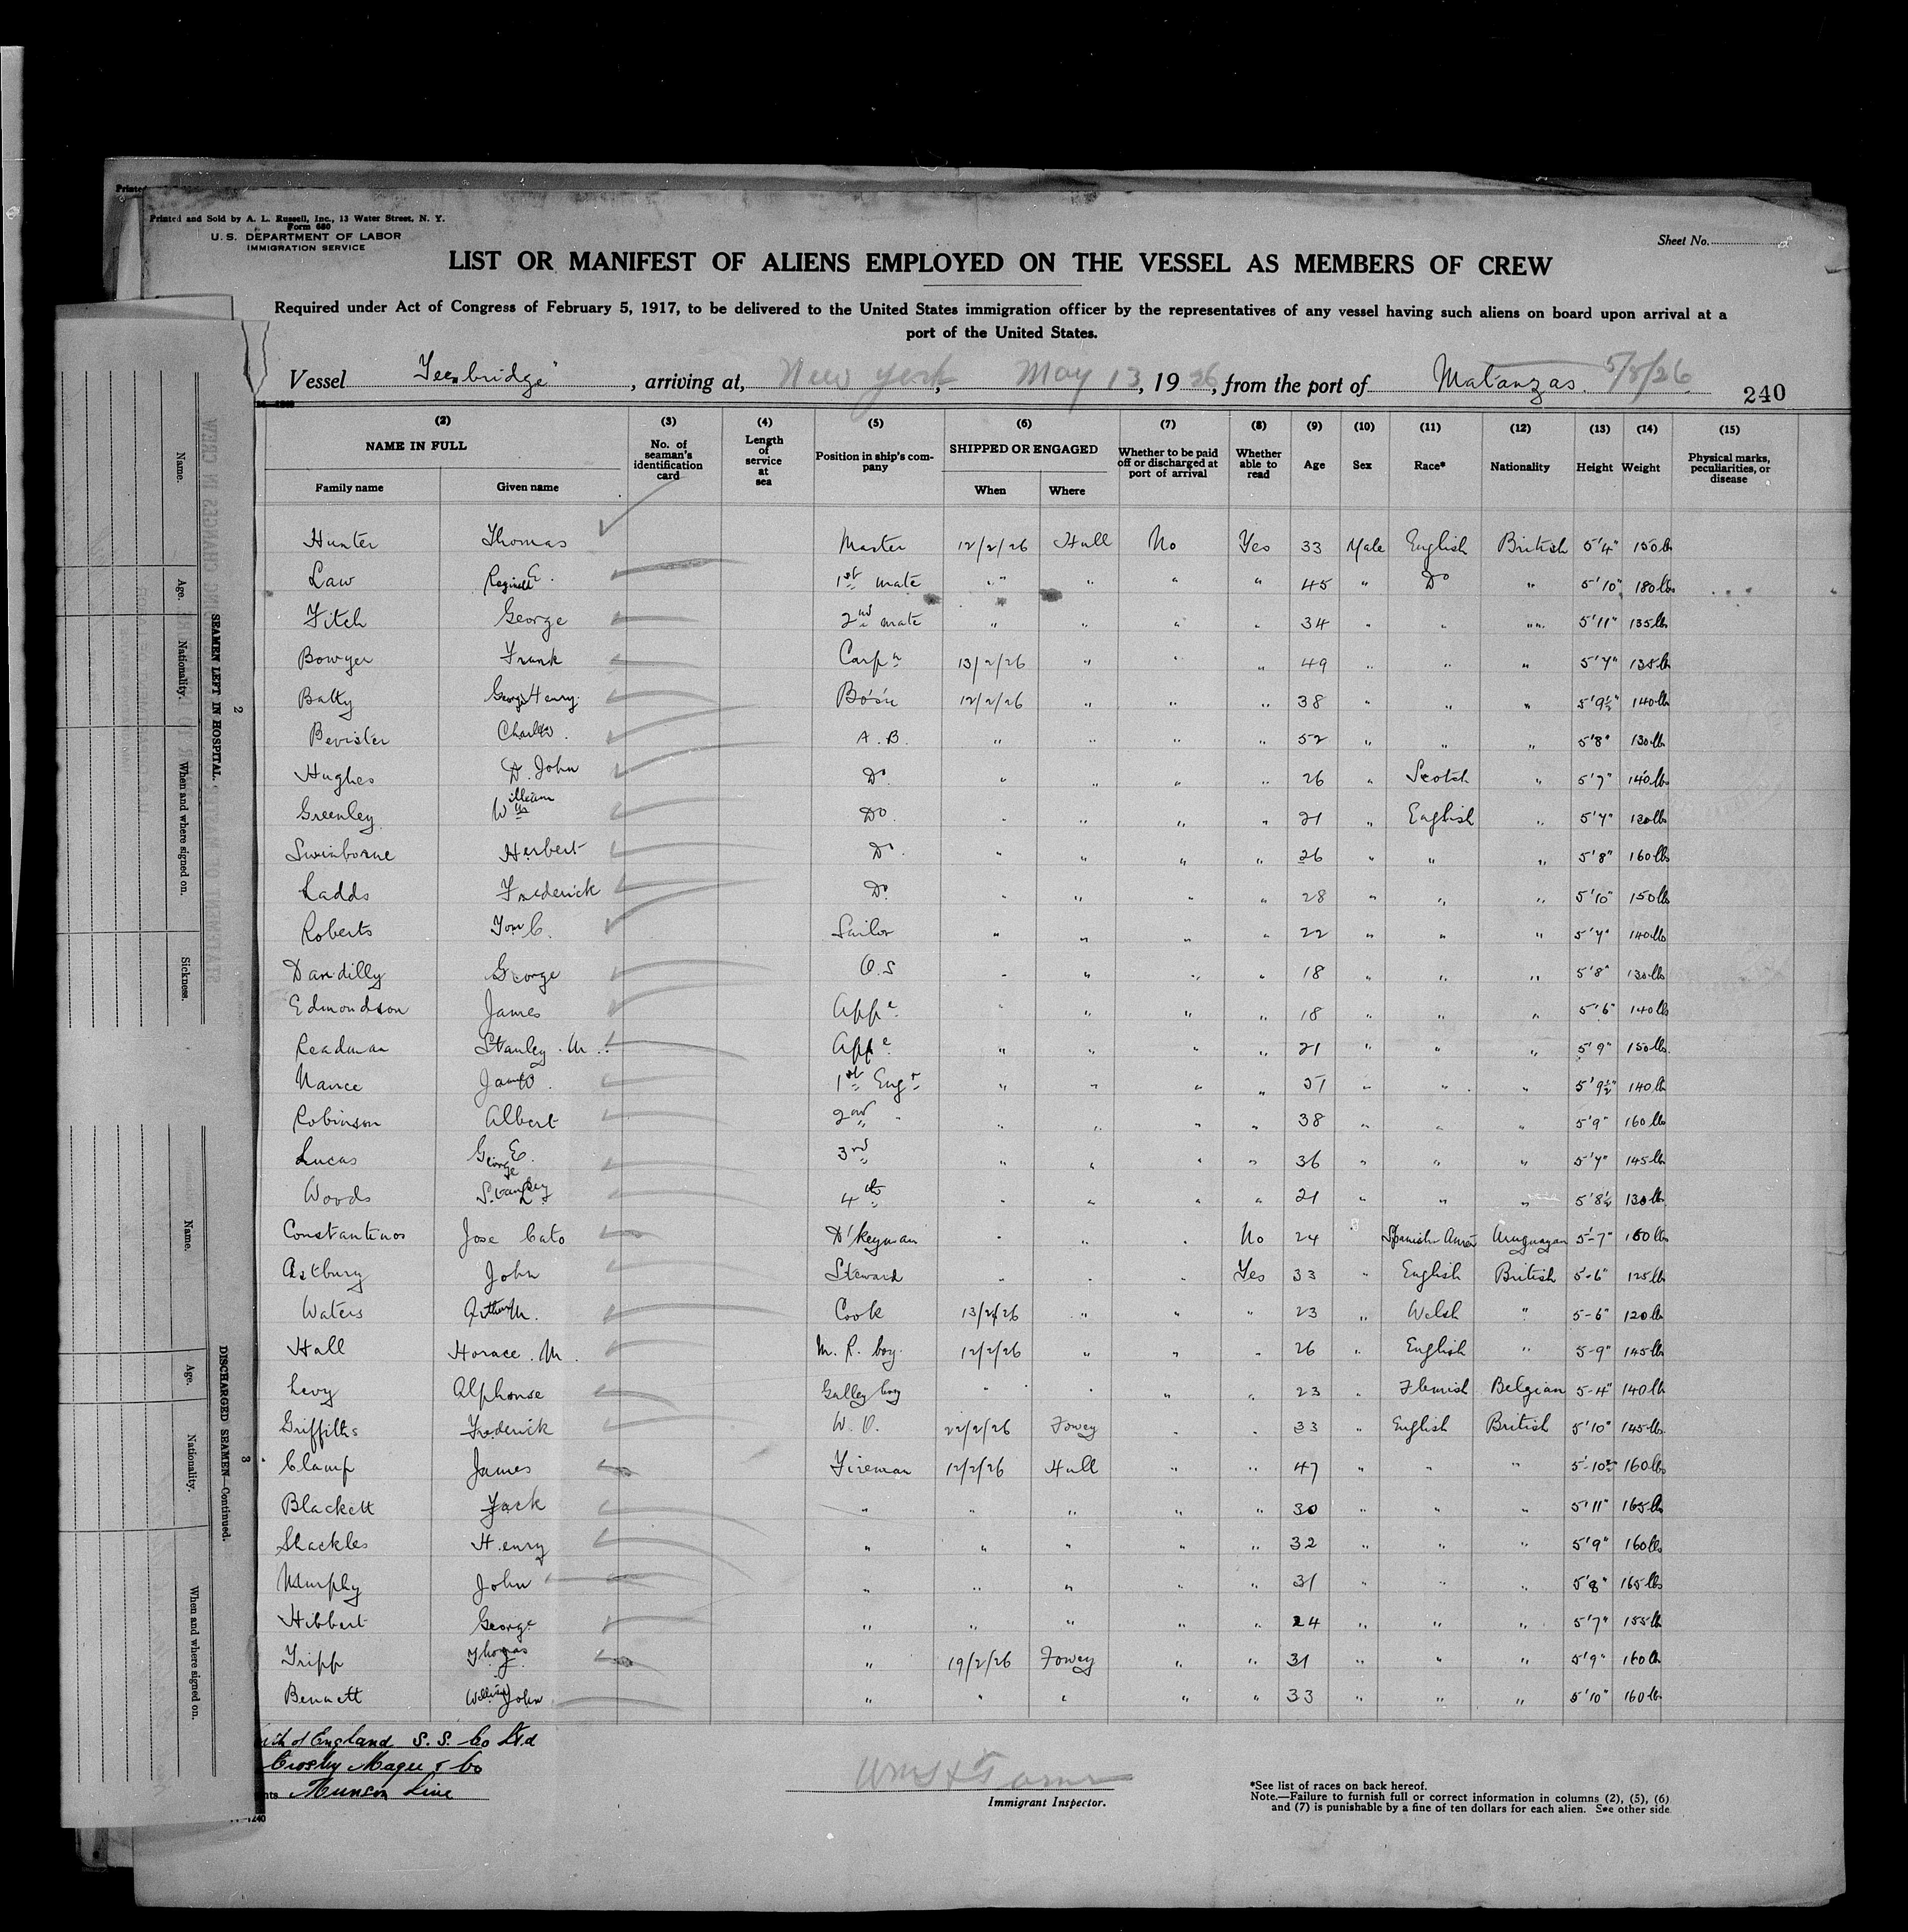 Printed and Sold by A. L. Russell, Inc., 13 Water Street, N. Y.
Form 680
U. S. DEPARTMENT OF LABOR
IMMIGRATION SERVICE
Sheet No.
LIST OR MANIFEST OF ALIENS EMPLOYED ON THE VESSEL AS MEMBERS OF CREW
Required under Act of Congress of February 5, 1917, to be delivered to the United States immigration officer by the representatives of any vessel having such aliens on board upon arrival at a
port of the United States.
Vessel "Teesbridge", arriving at, New York, May 13, 1926, from the port of Matanzas. 5/8/26
240
(2) (3) (4) (5) (6) (7) (8) (9) (10) (11) (12) (13) (14) (15)
NAME IN FULL Family name Given name
No. of seaman's identification card
Length of service at sea
Position in ship's company
SHIPPED OR ENGAGED When Where
Whether to be paid off or discharged at port of arrival
Whether able to read
Age Sex Race* Nationality Height Weight
Physical marks, peculiarities, or disease
Hunter Thomas Master 12/2/26 Hull No Yes 33 Male English British 5'4" 150lb
Law Reginald E. 1st mate " " " " " 45 " Do " 5'10" 180lbs
Fitch George 2nd mate " " " " 34 " " " 5'11" 135lbs
Bowyer Frank Carpn 13/2/26 " " " 49 " " " 5'7" 138lb
Batty George Henry Bosn 12/2/26 " " " 38 " " " 5'9½" 140lb
Bevister Charles W. A.B. " " " " 52 " " " 5'8" 130lb
Hughes D. John Do " " " " 26 " Scotch " 5'7" 140lbs
Greenley William Do. " " " " 21 " English " 5'7" 130lbs
Swinborne Herbert Do. " " " " 26 " " " 5'8" 160lbs
Ladds Frederick Do " " " " 28 " " " 5'10" 150lb
Roberts Tom C. Sailor " " " " 22 " " " 5'7" 140lbs
Dandilly George O.S " " " " 18 " " " 5'8" 130lbs
Edmondson James Appe " " " " 18 " " " 5'6" 140lb
Readman Stanley. M. Appe " " " " 21 " " " 5'9" 150lbs.
Nance James. 1st Engr " " " " 51 " " " 5'9½" 140lb
Robinson Albert 2nd " " " " " 38 " " " 5'9" 160lb
Lucas George E. 3rd " " " " " 36 " " " 5'7" 145lb
Woods Stanley 4th " " " " " 21 " " " 5'8½ 130lb
Constantinos Jose Cato D'keyman " " " No 24 " Spanish Amer Uruguayan 5-7" 160lbs
Astbury John Steward " " " Yes 33 " English British 5-6" 125lb
Waters Arthur M. Cook 13/2/26 " " " 23 " Welsh " 5-6" 120lb
Hall Horace. M. M. R. boy. 12/2/26 " " " 26 " English " 5-9" 145lb
Levy Alphonse Galley boy " " " " 23 " Flemish Belgian 5-4" 140lb
Griffiths Frederick W. O. 22/2/26 Fowey " " 33 " English British 5'10" 145lb.
Clamp James Fireman 12/2/26 Hull " " 47 " " " 5'-10½" 160lbs
Blackett Jack " " " " " 30 " " " 5'11" 165lb
Shackles Henry " " " " " 32 " " " 5'9" 160lbs
Murphy John " " " " " 31 " " " 5'8" 165lbs
Hibbert George " " " " " 24 " " " 5'7" 155lb
Tripp Thomas " 19/2/26 Fowey " " 31 " " " 5'9" 160lb
Bennett William John " " " " " 33 " " " 5'10" 160lb
of England S. S. Co Ltd
Crosby Magee & Co
Munson Line
Immigrant Inspector.
*See list of races on back hereof.
Note.—Failure to furnish full or correct information in columns (2), (5), (6)
and (7) is punishable by a fine of ten dollars for each alien. See other side.
SEAMEN LEFT IN HOSPITAL.
2
Name. Age. Nationality. When and where signed on. Sickness.
DISCHARGED SEAMEN—Continued.
3
Name. Age. Nationality. When and where signed on.